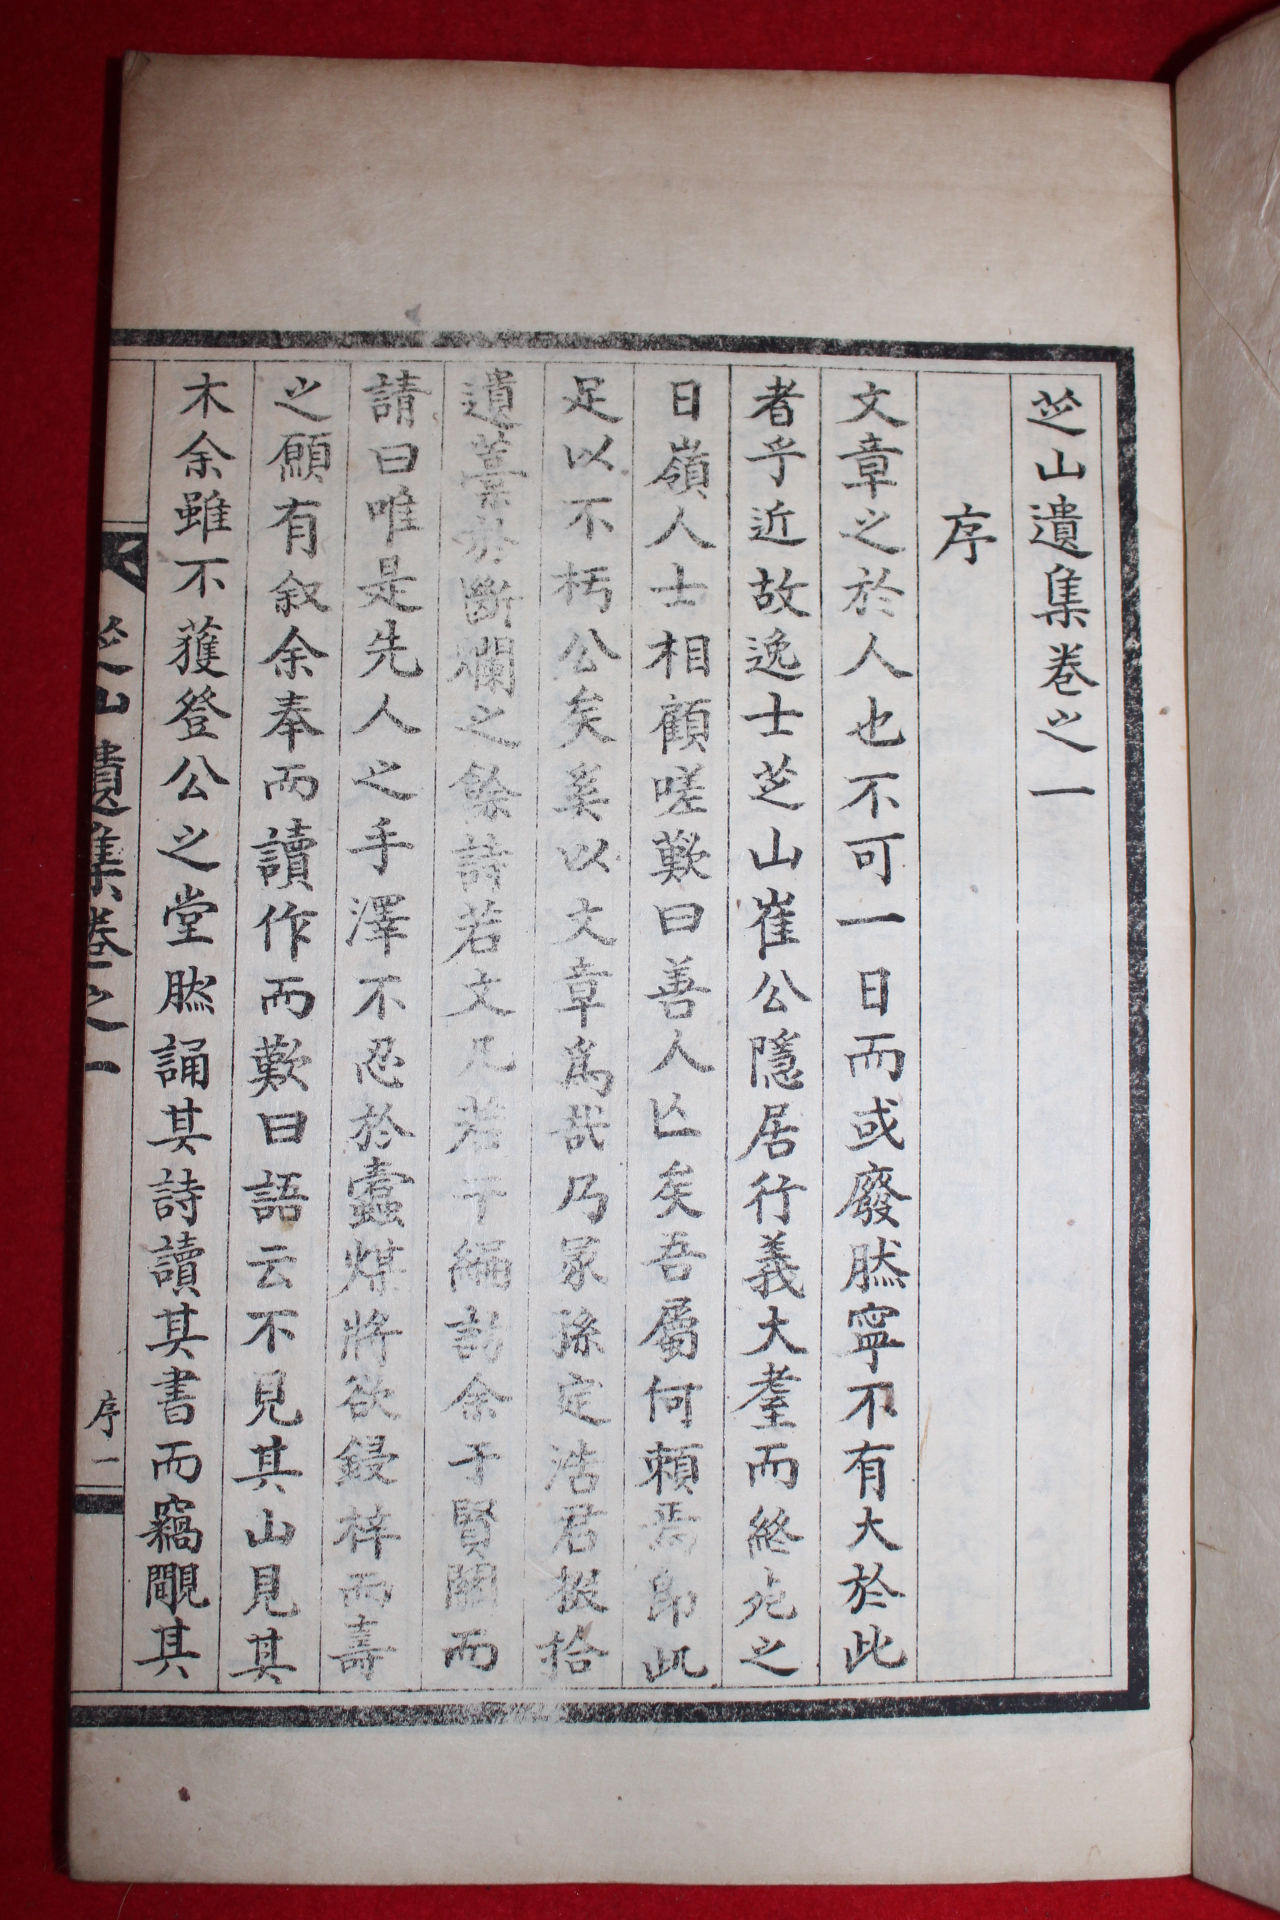 芝山遺集卷之一
序
文章之於人也不可一日而或廢然寧不有大於此
者乎近故逸士芝山崔公隱居行義大耋而終死之
日嶺人士相顧嗟歎曰善人亡矣吾屬何賴焉卽此
足以不朽公矣奚以文章爲哉乃冡孫定浩君掇拾
遺藁於斷爛之餘詩若文凡若干編訪余于賢關而
請曰唯是先人之手澤不忍於蠹煤將欲鋟梓而壽
之願有叙余奉而讀作而歎曰語云不見其山見其
木余雖不獲登公之堂然誦其詩讀其書而竊覸其
芝山遺集卷之一
序一